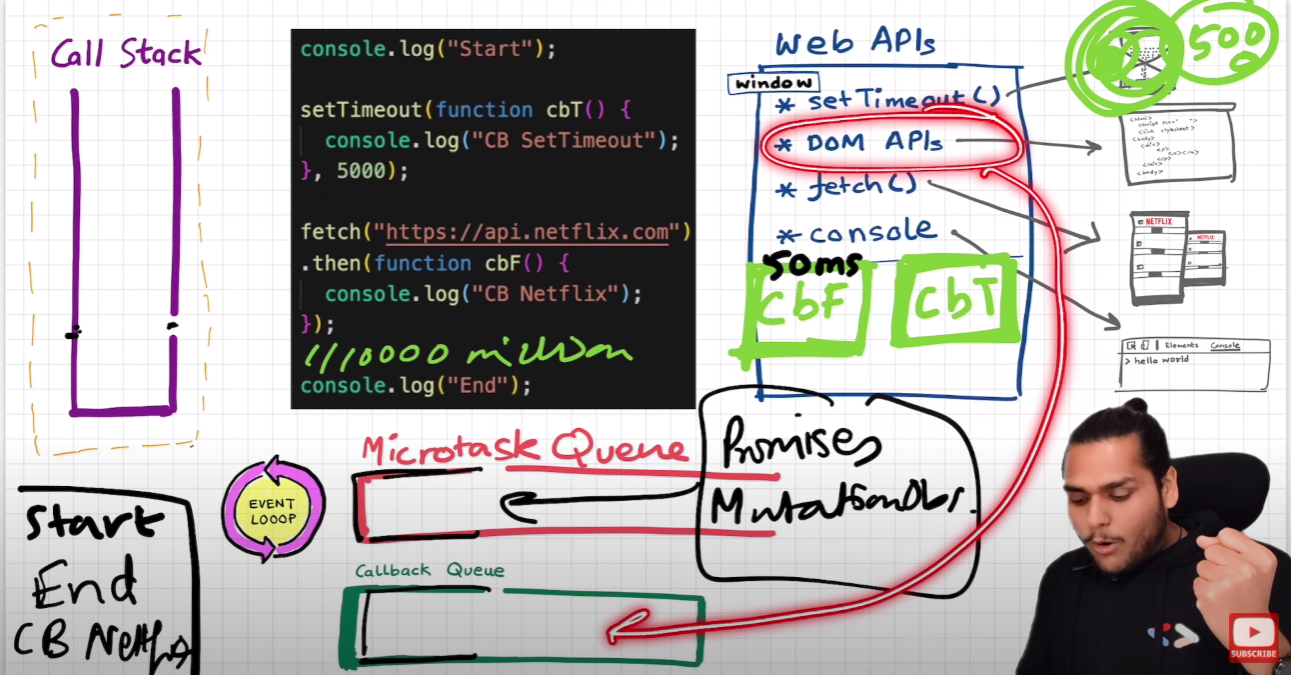 Call Stack
console.log("Start");
setTimeout(function cbT() {
console.log("CB SetTimeout");
}, 5000);
fetch("https://api.netflix.com")
.then(function cbF() {
console.log("CB Netflix");
});
million
console.log("End");
Web APIs
window
* setTimeout()
* DOM APIs
* fetch()
* console
50ms
CbF
CbT
500
<html>
<body>
<div>
<p>
</p>
</div>
<body>
NETFLIX
NETFLIX
Elements Console
> hello world
Microtask Queue
Promises
MutationObs.
EVENT
LOOOP
Callback Queue
Start
End
CB
SUBSCRIBE